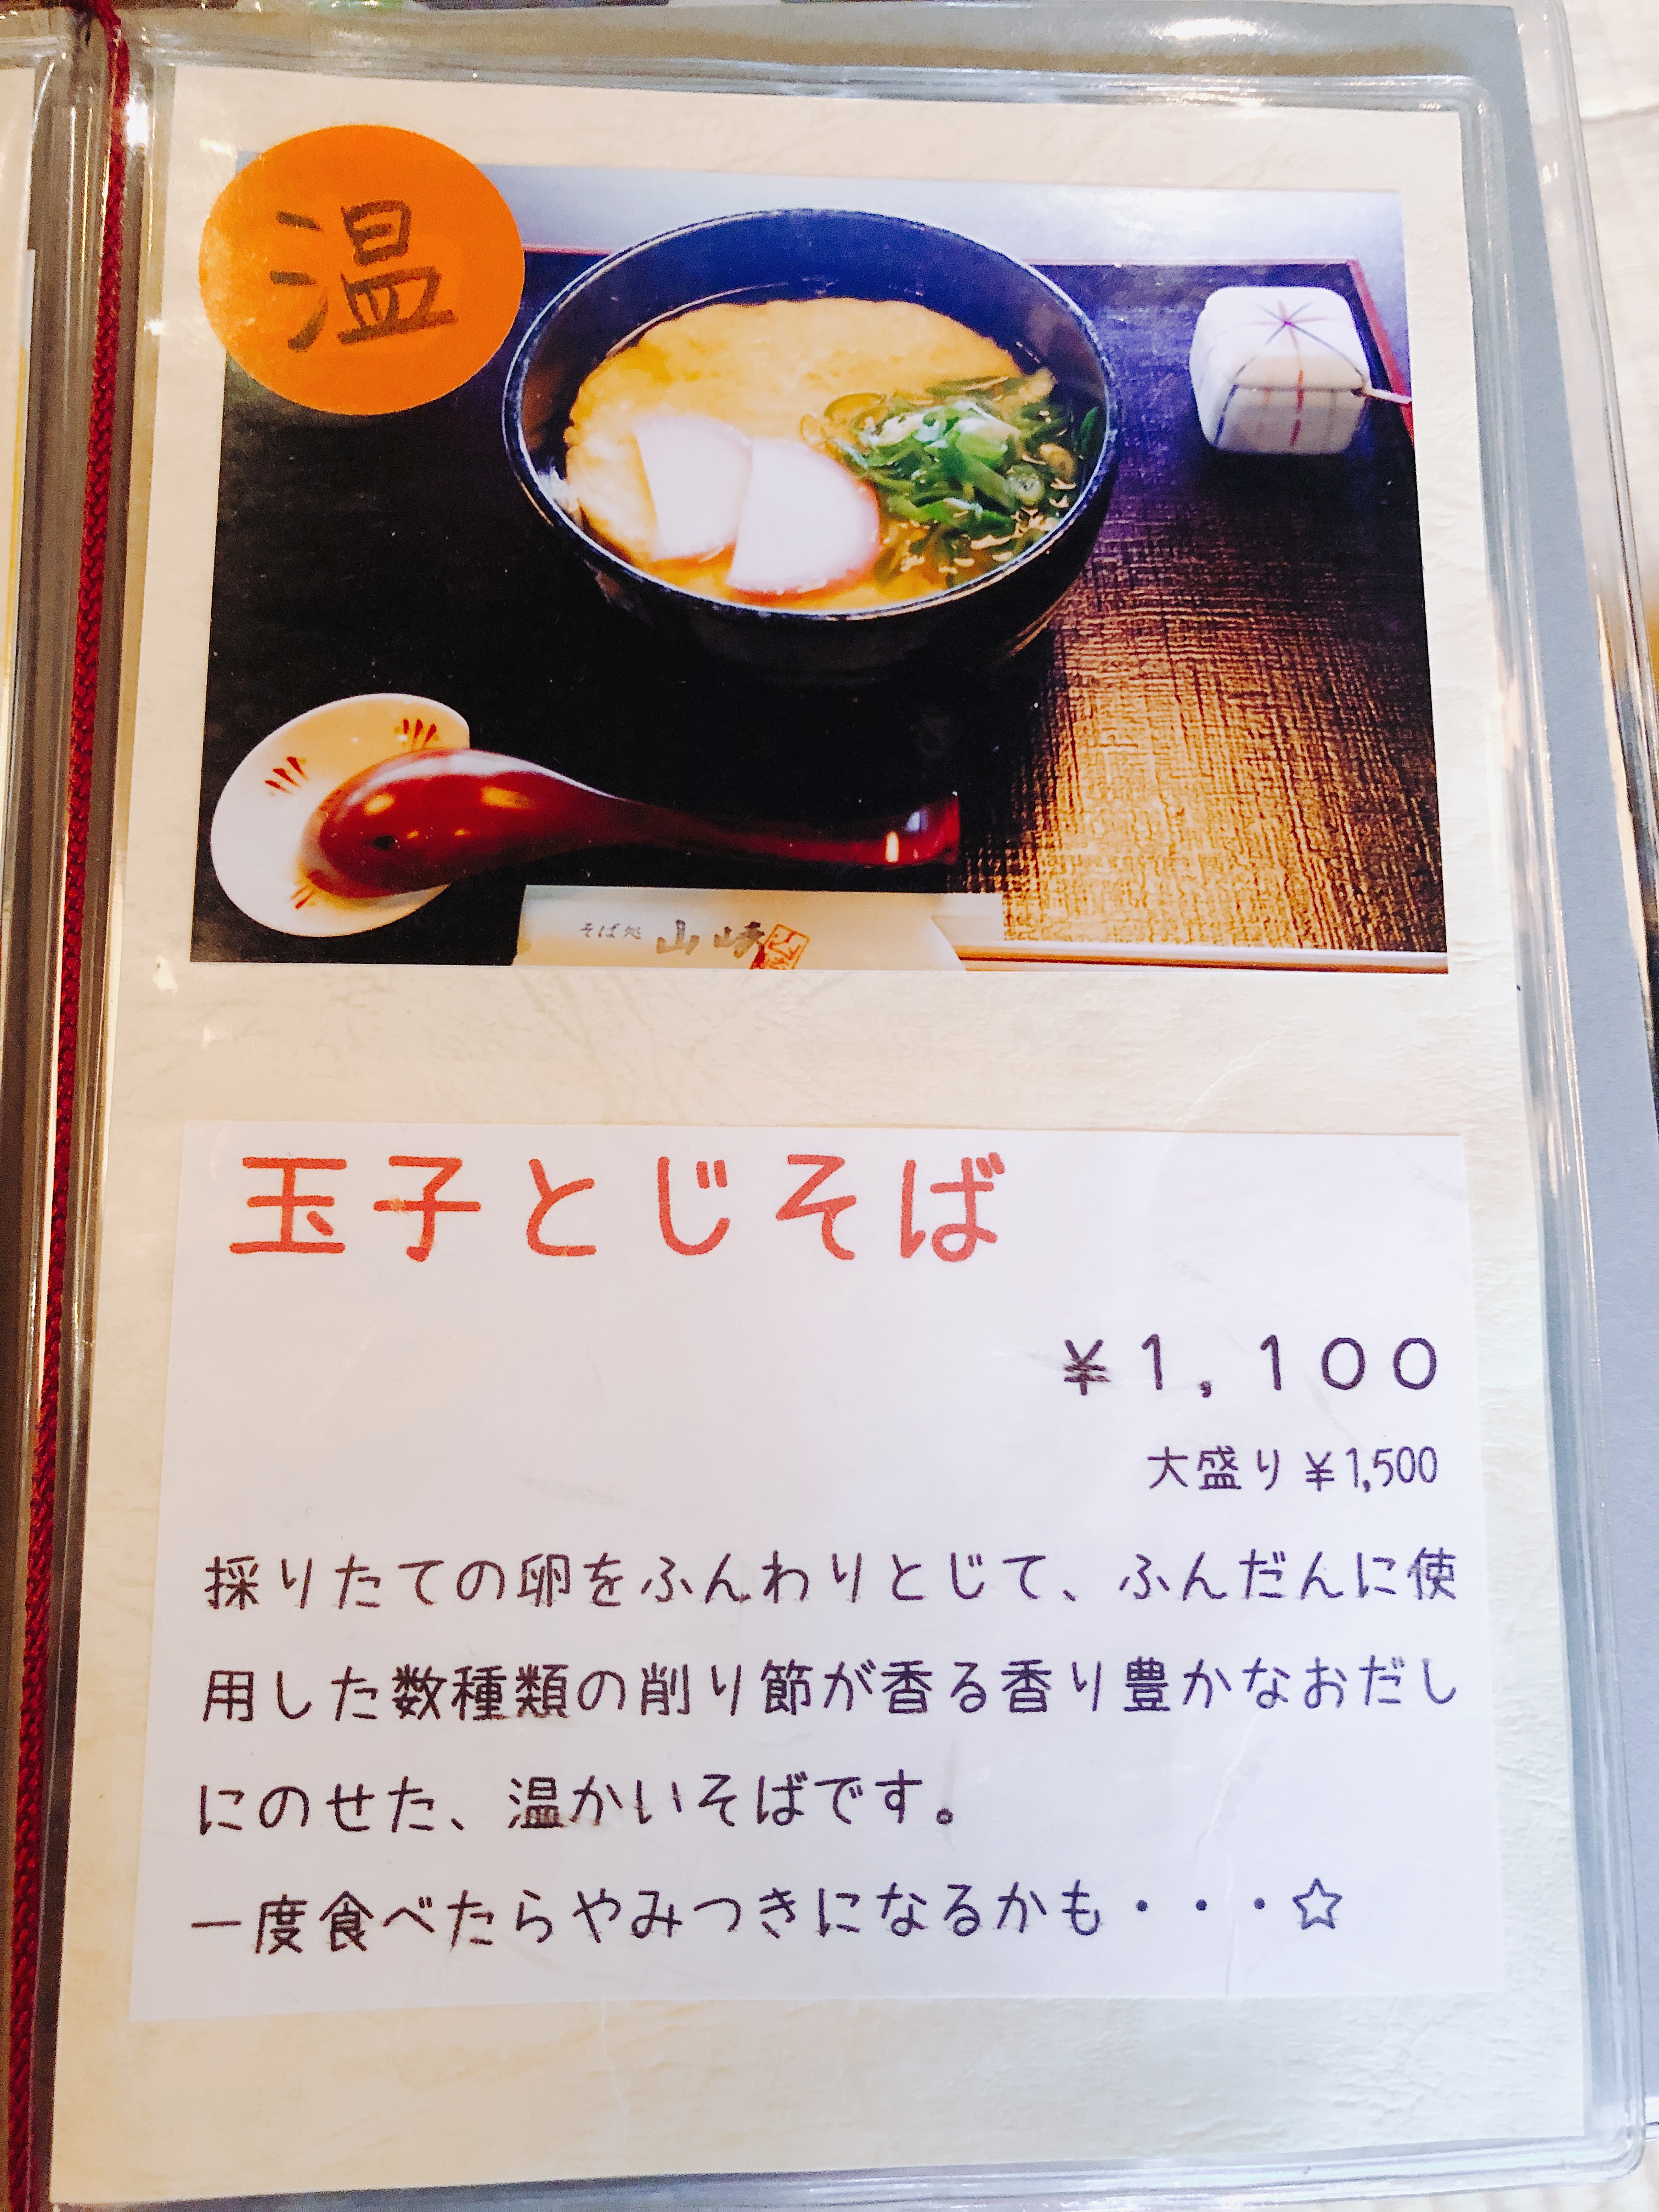 温
そば処 山崎
玉子とじそば
¥1,100
大盛り¥1,500
採りたての卵をふんわりとじて、ふんだんに使
用した数種類の削り節が香る香り豊かなおだし
にのせた、温かいそばです。
一度食べたらやみつきになるかも・・・☆